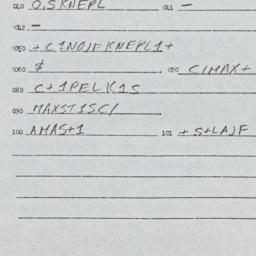 040 O,SKNEPL 041 —
042 —
050 +C1NO)FKNEPL1+
060 $ 070 C/MAX+
080 C+1PELK1S
090 MAXST1SC/
100 AMAS+1 101 +S+LA)F